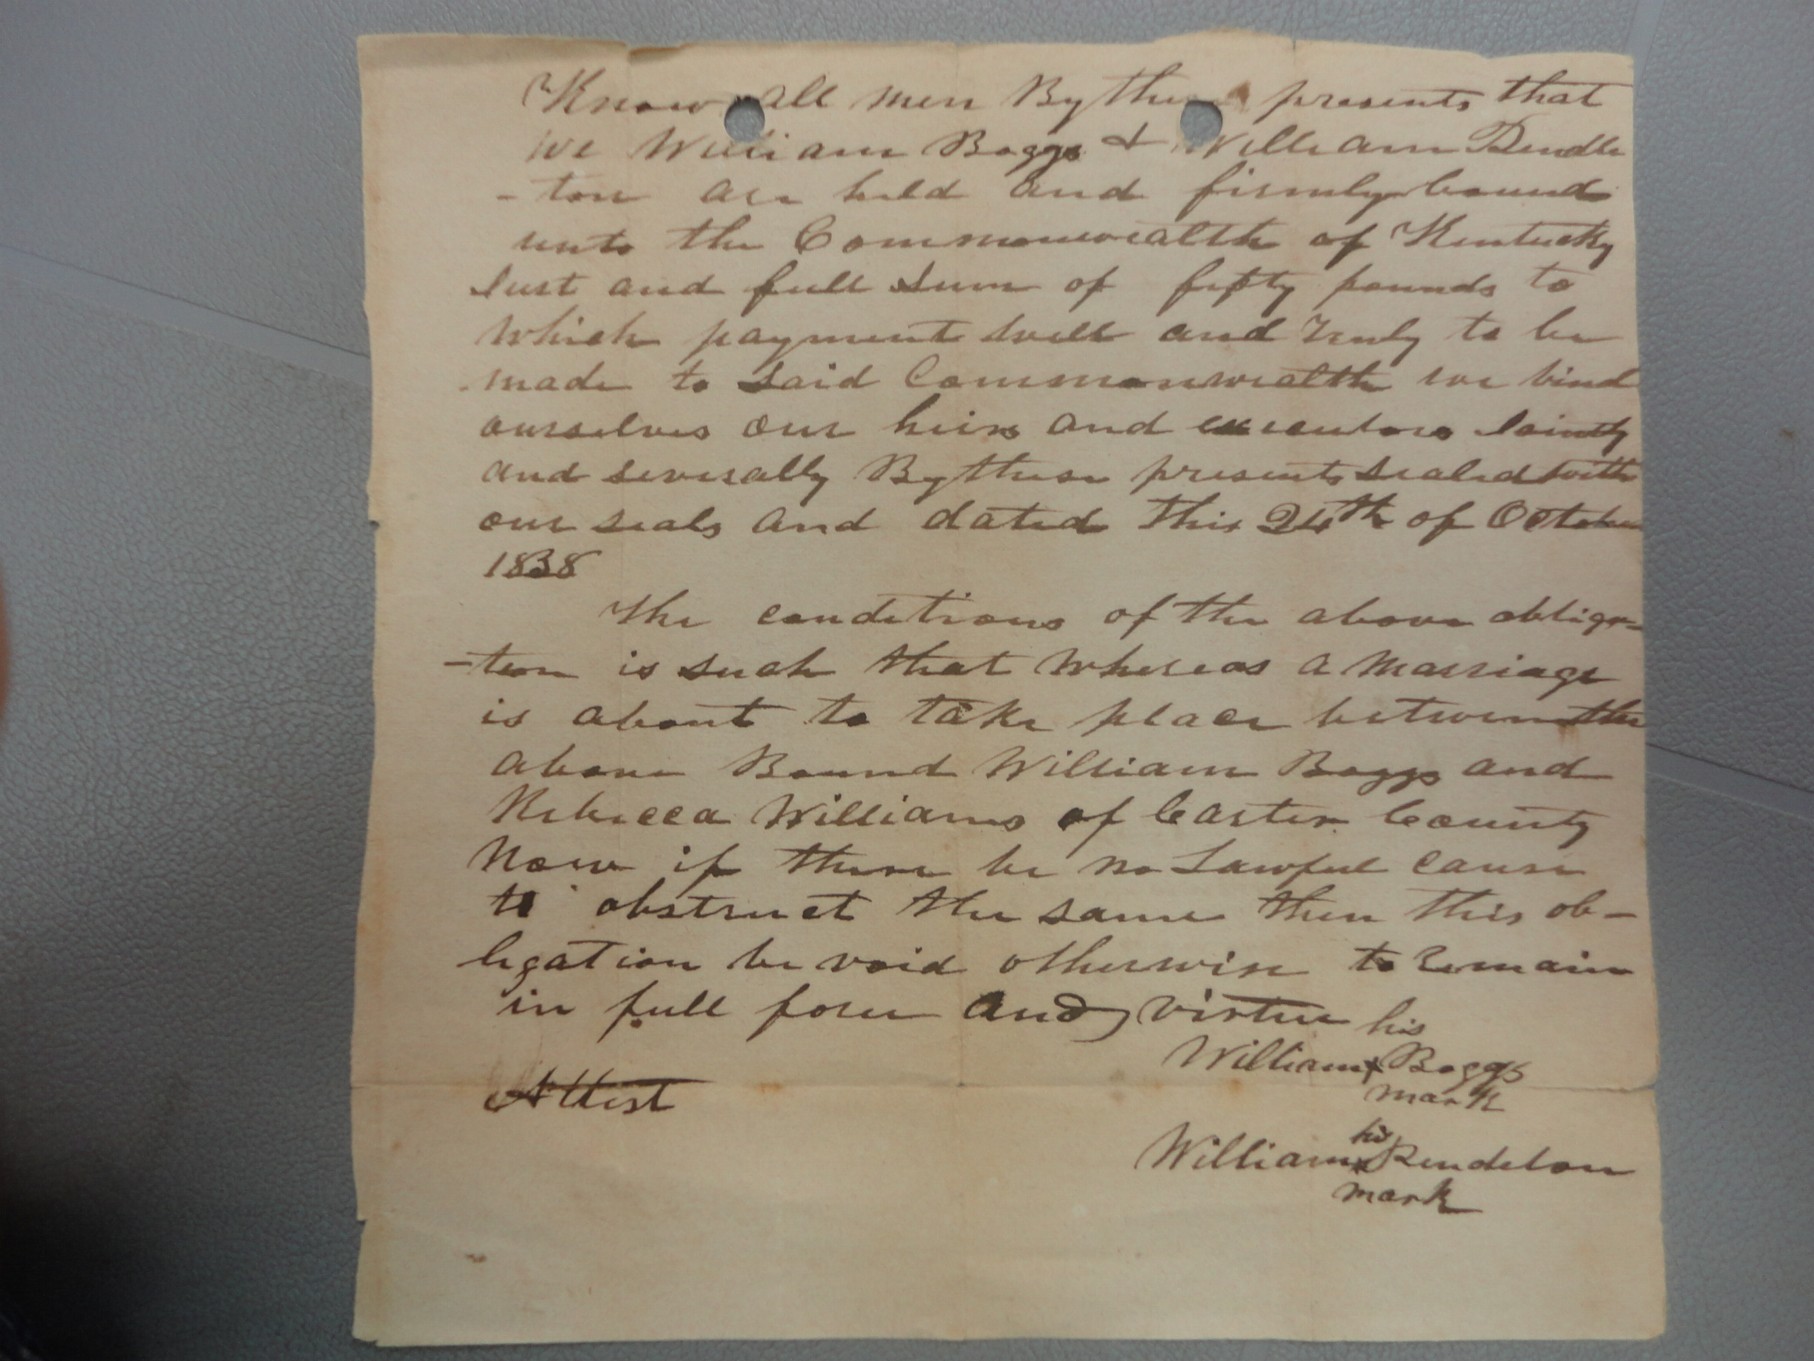 Know all men By these presents that
we William Boggs & William Pendle
-ton are held and firmly bound
unto the Commonwealth of Kentucky
Just and full sum of fifty pounds to
which payment well and truly to be
made to said Commonwealth we bind
ourselves our heirs and executors Jointly
and severally By these presents sealed with
our seals and dated this 24th of October
1838
The conditions of the above obliga-
-tion is such that whereas a marriage
is about to take place between the
above Bound William Boggs and
Rebecca Williams of Carter County
Now if there be no Lawful cause
to obstruct the same then this ob-
ligation be void otherwise to remain
in full force and virtue
his
William x Boggs
mark
Attest
his
William x Pendelton
mark